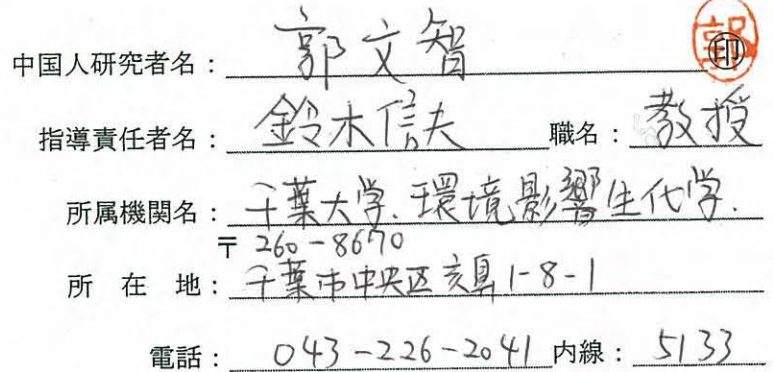 中国人研究者名：郭文智 郭 印
指導責任者名：鈴木信夫 職名：教授
所属機関名：千葉大学.環境影響生化学.
〒260-8670
所在地：千葉市中央区亥鼻1-8-1
電話：043-226-2041 内線：5133